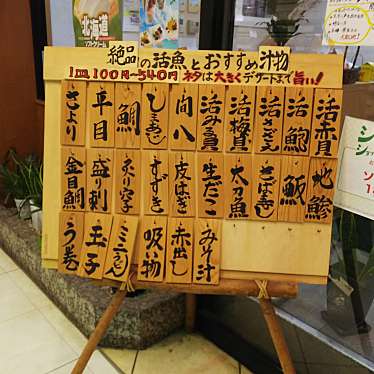 北海道
ソフトクリーム
絶品の活魚とおすすめ汁物
1皿100円~540円 ネタは大きくデザートまで旨い!!
活赤貝
活鮑
活さざえ
活みる貝
間八
しまあじ
鯛
平目
さより
地鯵
太刀魚
生だこ
皮はぎ
すずき
盛り刺
金目鯛
みそ汁
赤出し
吸物
ミニうどん
玉子
う巻